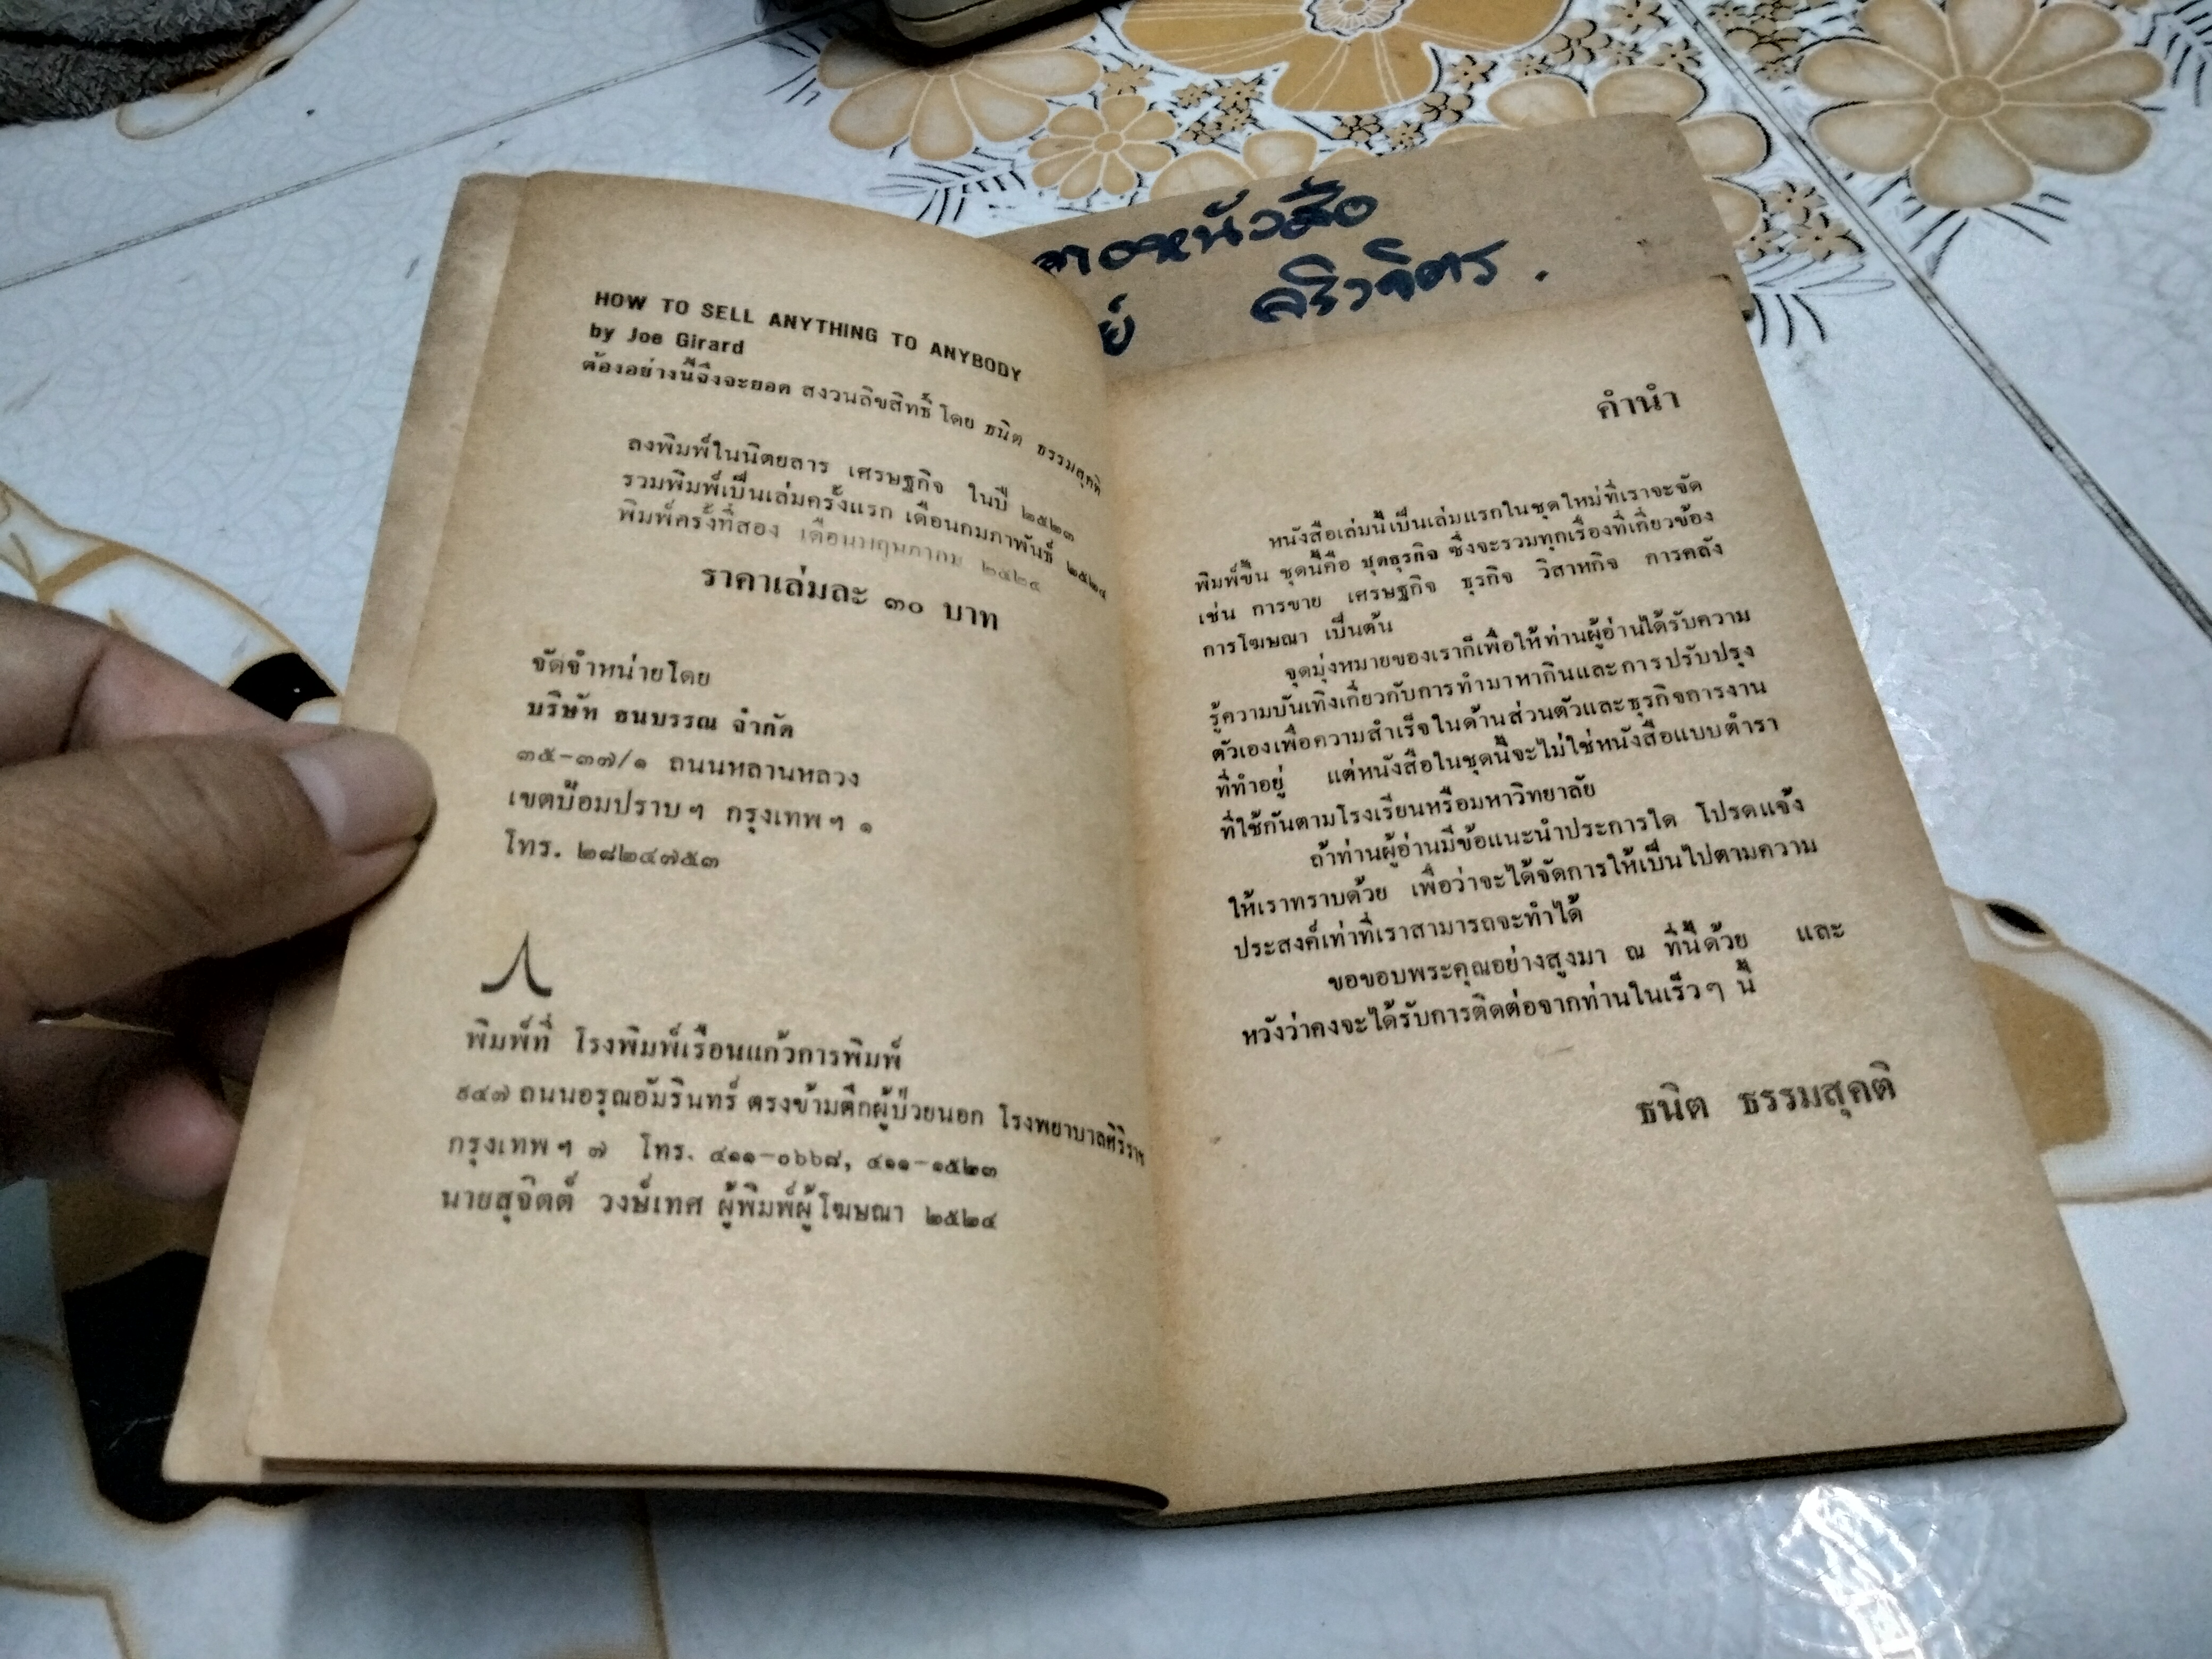 HOW TO SELL ANYTHING TO ANYBODY
by Joe Girard
ต้องอย่างนี้จึงจะยอด สงวนลิขสิทธิ์ โดย ธนิต ธรรมสุคติ
ลงพิมพ์ในนิตยสาร เศรษฐกิจ ในปี ๒๕๒๓
รวมพิมพ์เป็นเล่มครั้งแรก เดือนกุมภาพันธ์ ๒๕๒๔
พิมพ์ครั้งที่สอง เดือนพฤษภาคม ๒๕๒๔
ราคาเล่มละ ๓๐ บาท
จัดจำหน่ายโดย
บริษัท ธนบรรณ จำกัด
๓๕-๓๗/๑ ถนนหลานหลวง
เขตป้อมปราบฯ กรุงเทพฯ ๑
โทร. ๒๘๒๔๗๕๓
พิมพ์ที่ โรงพิมพ์เรือนแก้วการพิมพ์
๙๔๗ ถนนอรุณอัมรินทร์ ตรงข้ามตึกผู้ป่วยนอก โรงพยาบาลศิริราช
กรุงเทพฯ ๗ โทร. ๔๑๑-๐๖๖๘, ๔๑๑-๑๕๒๓
นายสุจิตต์ วงษ์เทศ ผู้พิมพ์ผู้โฆษณา ๒๕๒๔
คำนำ
หนังสือเล่มนี้เป็นเล่มแรกในชุดใหม่ที่เราจะจัด
พิมพ์ขึ้น ชุดนี้คือ ชุดธุรกิจ ซึ่งจะรวมทุกเรื่องที่เกี่ยวข้อง
เช่น การขาย เศรษฐกิจ ธุรกิจ วิสาหกิจ การคลัง
การโฆษณา เป็นต้น
จุดมุ่งหมายของเราก็เพื่อให้ท่านผู้อ่านได้รับความ
รู้ความบันเทิงเกี่ยวกับการทำมาหากินและการปรับปรุง
ตัวเองเพื่อความสำเร็จในด้านส่วนตัวและธุรกิจการงาน
ที่ทำอยู่ แต่หนังสือในชุดนี้จะไม่ใช่หนังสือแบบตำรา
ที่ใช้กันตามโรงเรียนหรือมหาวิทยาลัย
ถ้าท่านผู้อ่านมีข้อแนะนำประการใด โปรดแจ้ง
ให้เราทราบด้วย เพื่อว่าจะได้จัดการให้เป็นไปตามความ
ประสงค์เท่าที่เราสามารถจะทำได้
ขอขอบพระคุณอย่างสูงมา ณ ที่นี้ด้วย และ
หวังว่าคงจะได้รับการติดต่อจากท่านในเร็วๆ นี้
ธนิต ธรรมสุคติ